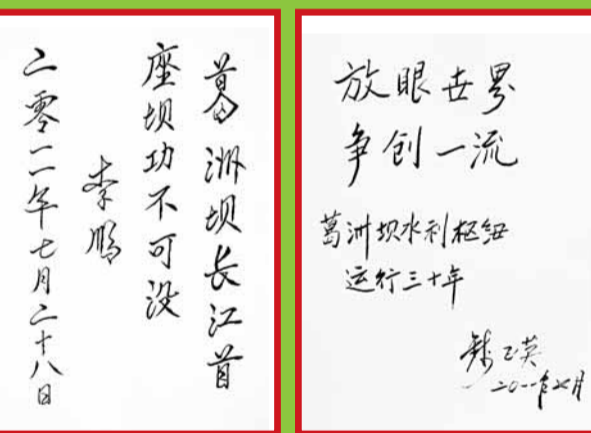 葛洲坝长江首
座坝功不可没
李鹏
二零一一年七月二十八日
放眼世界
争创一流
葛洲坝水利枢纽
运行三十年
钱正英
二〇一一年七月